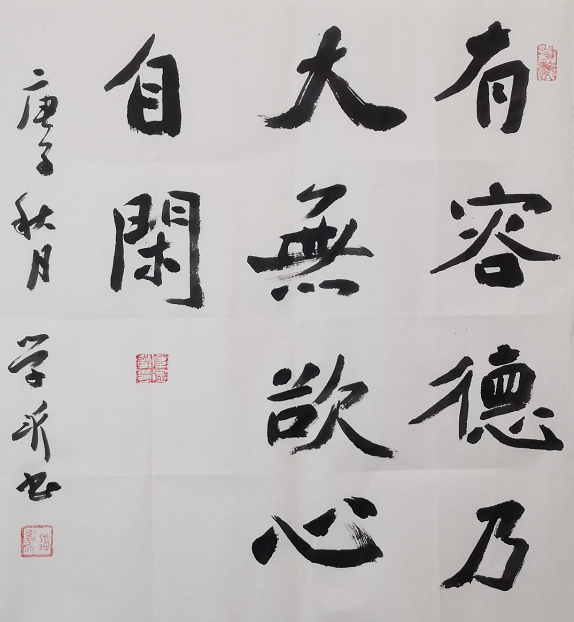 有容德乃
大無欲心
自閑
庚子秋月学 书